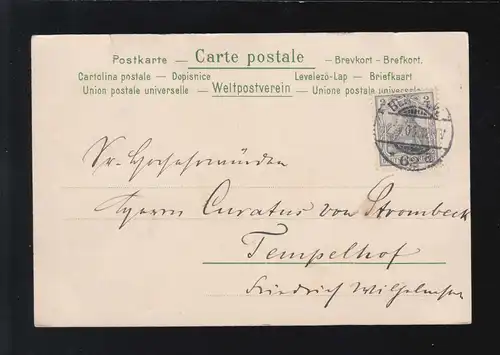 Postkarte — Carte postale — Brevkort - Brefkort.
Cartolina postale — Dopisnice Levelezö-Lap — Briefkaart
Union postale universelle — Weltpostverein — Unione postale universale
2 2
62
Sr. Hochehrwürden
Herrn Curatus von Strombeck
Tempelhof
Friedrich Wilhelmstr